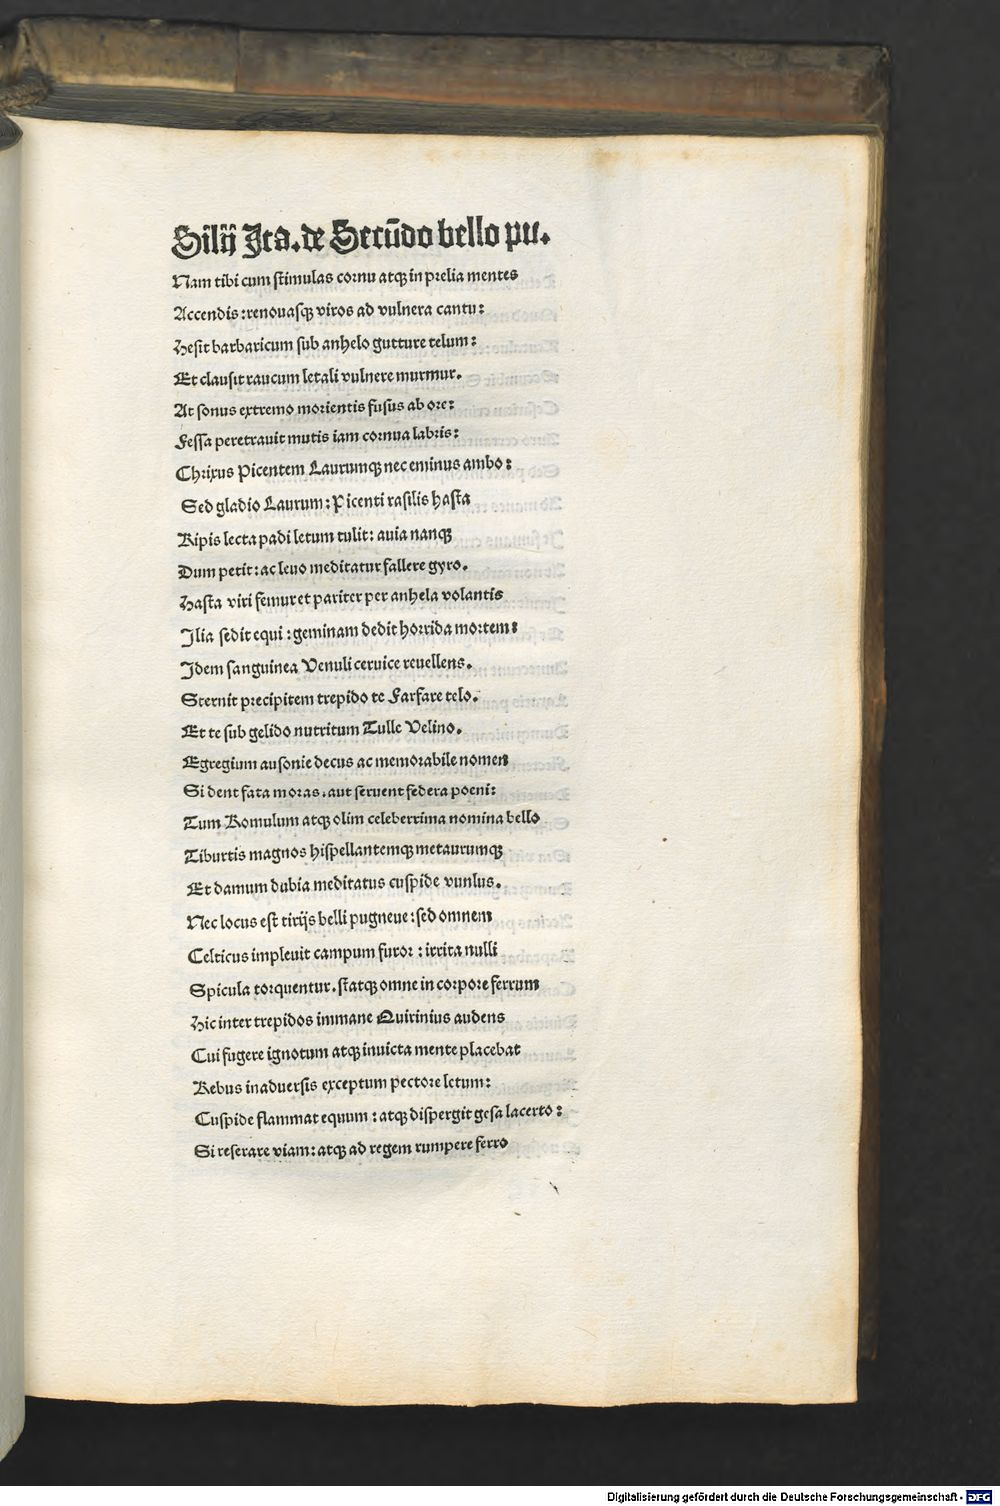 Silij Ita. de Secūdo bello pu.
Nam tibi cum stimulas cornu atqꝫ in prelia mentes
Accendis: renouasqꝫ viros ad vulnera cantu:
Hesit barbaricum sub anhelo gutture telum:
Et clausit raucum letali vulnere murmur.
At sonus extremo morientis fusus ab ore:
Fessa peretrauit mutis iam cornua labris:
Chrixus Picentem Laurumqꝫ nec eminus ambo:
Sed gladio Laurum: Picenti rasilis hasta
Ripis lecta padi letum tulit: auia nanqꝫ
Dum petit: ac leuo meditatur fallere gyro.
Hasta viri femur et pariter per anhela volantis
Ilia sedit equi: geminam dedit horrida mortem:
Idem sanguinea Venuli ceruice reuellens.
Sternit precipitem trepido te Farfare telo.
Et te sub gelido nutritum Tulle Velino.
Egregium ausonie decus ac memorabile nomen
Si dent fata moras. aut seruent federa poeni:
Tum Romulum atqꝫ olim celeberrima nomina bello
Tiburtis magnos hispellantemqꝫ metaurumqꝫ
Et damum dubia meditatus cuspide vunlus.
Nec locus est tirijs belli pugneue: sed omnem
Celticus impleuit campum furor: irrita nulli
Spicula torquentur. statqꝫ omne in corpore ferrum
Hic inter trepidos immane Quirinius audens
Cui fugere ignotum atqꝫ inuicta mente placebat
Rebus inaduersis exceptum pectore letum:
Cuspide flammat equum: atqꝫ dispergit gesa lacerto:
Si reserare viam: atqꝫ ad regem rumpere ferro
Digitalisierung gefördert durch die Deutsche Forschungsgemeinschaft - DFG